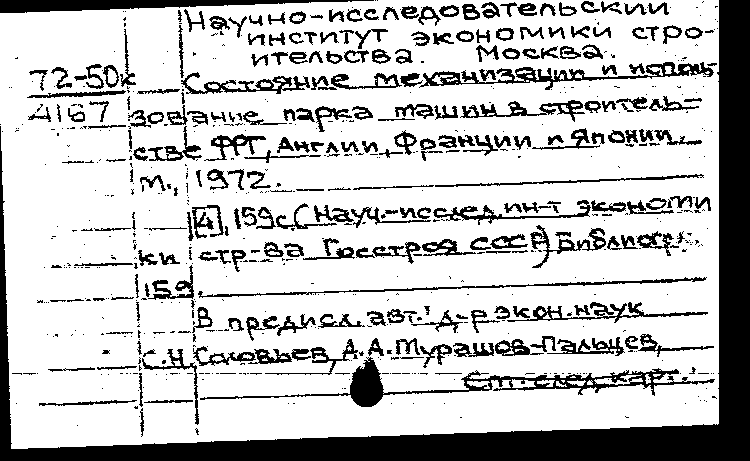 Научно-исследовательский
институт экономики стро-
ительства. Москва.
72-50к Состояние механизации и исполь-
4167 зование парка машин в строитель-
стве ФРГ, Англии, Франции и Японии.
М., 1972.
[4], 159с. (Науч.-исслед. ин-т экономи
ки стр-ва Госстроя СССР) Библиогр.:
159.
В предисл. авт.: д-р экон. наук
С.Н. Соловьев, А.А. Мурашов-Пальцев,
См. след. карт.